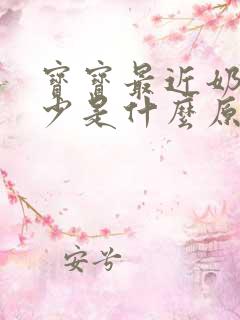 寶寶最近奶
少是什麼原
安兮